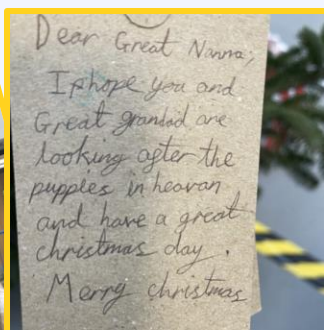 Dear Great Nanna,
I hope you and
Great grandad are
looking after the
puppies in heavan
and have a great
christmas day.
Merry christmas